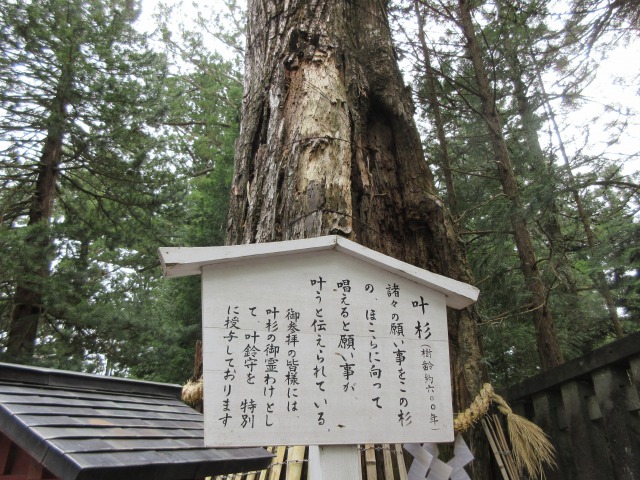 叶杉(樹齢約六〇〇年)
諸々の願い事をこの杉
の、ほこらに向って
唱えると願い事が
叶うと伝えられている
御参拝の皆様には
叶杉の御霊わけとし
て、叶鈴守を、特別
に授与しております